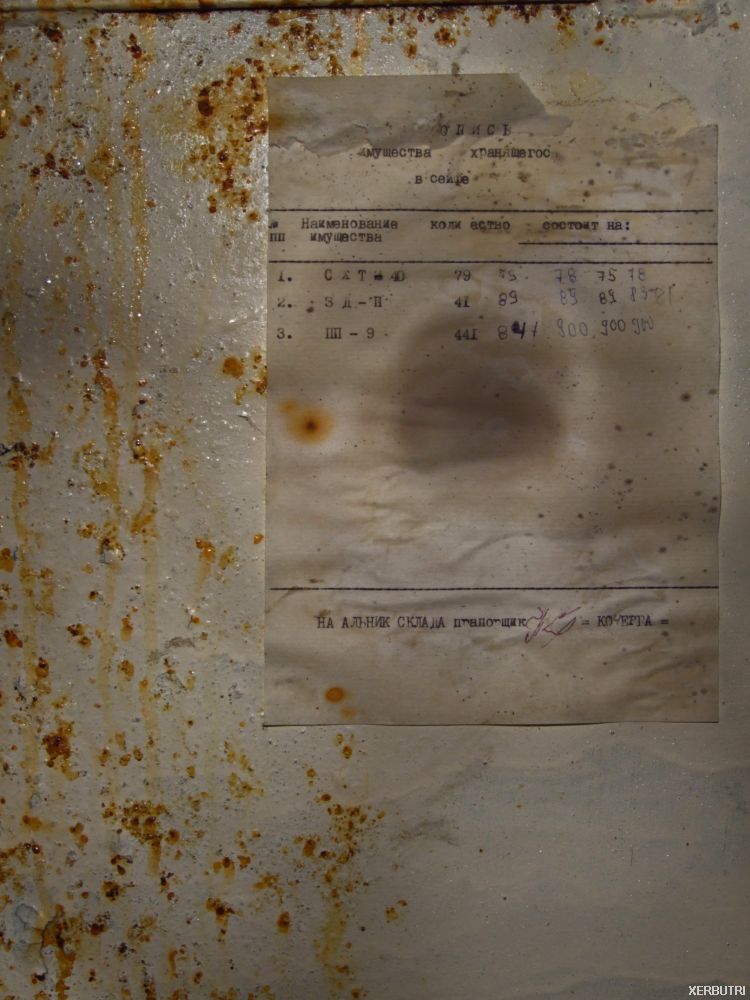 ОПИСЬ
имущества хранящегос
в сейфе
пп Наименование имущества коли ество состоит на:
1. 79 79 78 75 78
2. ЗД-П 41 89 89 89
3. ПП - 9 441 841 900 900 900
НА АЛЬНИК СКЛАДА прапорщик = КОЧЕРГА =
XERBUTRI